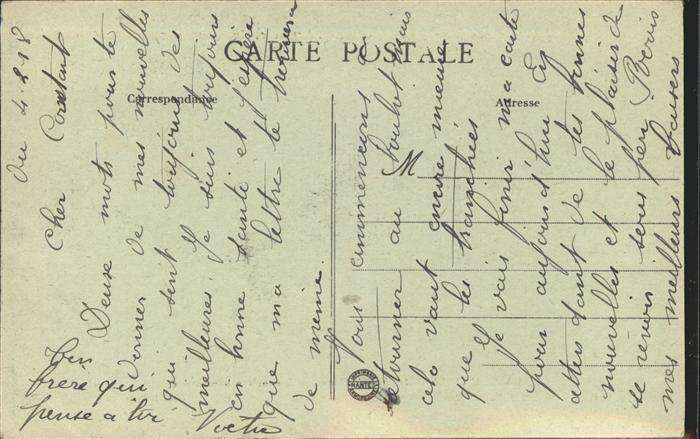 CARTE POSTALE
Correspondance
Adresse
M
Du 4-8-18
Cher Constant
Deux mots pour te
donner de mes nouvelles
qui sont toujours des
meilleures Je suis toujours
en bonne santé et j'espère
que ma lettre te trouvera
de même.
Nous commençons à
retourner au boulot mais
cela vaut encore mieux
que les tranchées
Je vais finir ma carte
pour aujourd'hui En
attendant de tes bonnes
nouvelles et le plaisir de
se revoir sous peu Reçois
mes meilleurs baisers
Ton
frère qui
pense à toi
NANTES